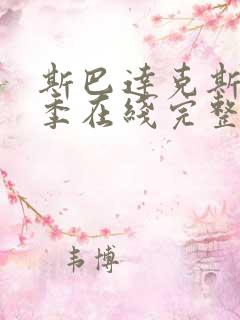 斯巴达克斯
季在綫完整
韦博